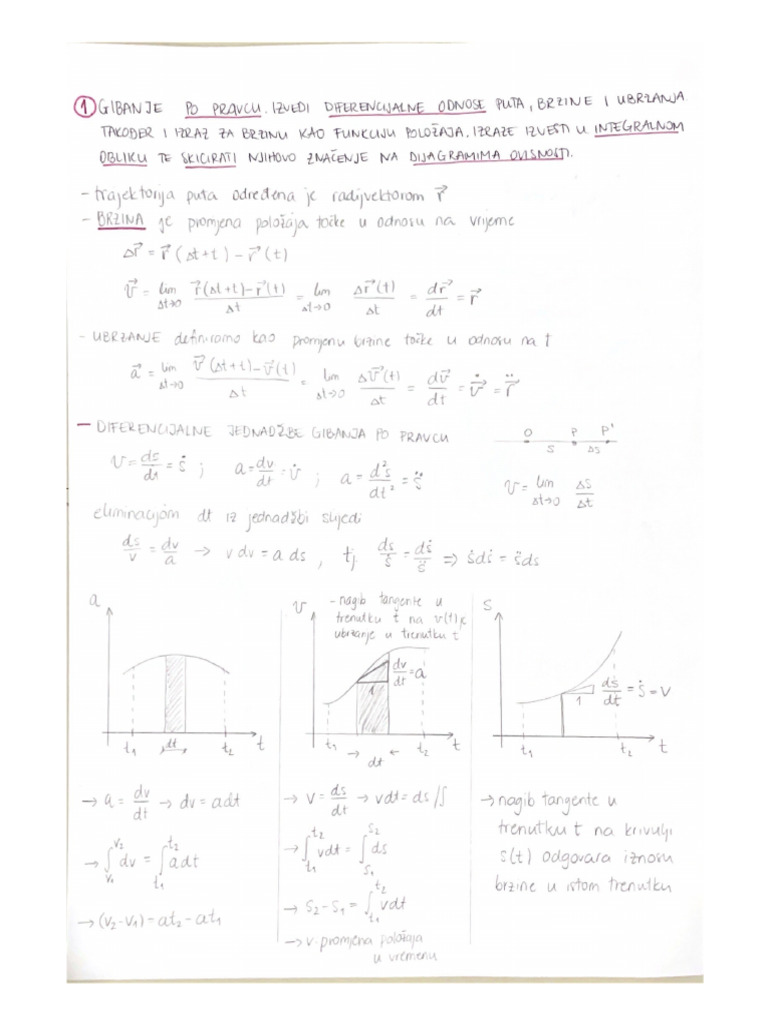 1 GIBANJE PO PRAVCU. IZVEDI DIFERENCIJALNE ODNOSE PUTA, BRZINE I UBRZANJA
TAKOĐER I IZRAZ ZA BRZINU KAO FUNKCIJU POLOŽAJA. IZRAZE IZVESTI U INTEGRALNOM
OBLIKU TE SKICIRATI NJIHOVO ZNAČENJE NA DIJAGRAMIMA OVISNOSTI.
- trajektorija puta određena je radijvektorom r⃗
- BRZINA je promjena položaja točke u odnosu na vrijeme
Δr⃗ = r⃗(Δt+t) - r⃗(t)
v⃗ = lim Δt→0 (r⃗(Δt+t) - r⃗(t))/Δt = lim Δt→0 Δr⃗(t)/Δt = dr⃗/dt = ṙ⃗
- UBRZANJE definiramo kao promjenu brzine točke u odnosu na t
a⃗ = lim Δt→0 (v⃗(Δt+t) - v⃗(t))/Δt = lim Δt→0 Δv⃗(t)/Δt = dv⃗/dt = v⃗̇ = r⃗̈
- DIFERENCIJALNE JEDNADŽBE GIBANJA PO PRAVCU
O P P'
S ΔS
v = ds/dt = ṡ ; a = dv/dt = v̇ ; a = d²s/dt² = s̈
v = lim Δt→0 ΔS/Δt
eliminacijom dt iz jednadžbi slijedi
ds/v = dv/a → v dv = a ds , tj. ds/ṡ = dṡ/s̈ ⇒ ṡdṡ = s̈ds
a
t₁ dt t₂ t
→ a = dv/dt → dv = adt
→ ∫v₁^v₂ dv = ∫t₁^t₂ adt
→ (v₂-v₁) = at₂ - at₁
v
- nagib tangente u
trenutku t na v(t) je
ubrzanje u trenutku t
dv/dt = a
1
t₁ t₂ t
→ dt ←
→ v = ds/dt → vdt = ds /∫
→ ∫t₁^t₂ vdt = ∫s₁^s₂ ds
→ s₂ - s₁ = ∫t₁^t₂ vdt
→ v. promjena položaja
u vremenu
S
ds/dt = ṡ = v
1
t₁ t₂ t
→ nagib tangente u
trenutku t na krivulji
s(t) odgovara iznosu
brzine u istom trenutku